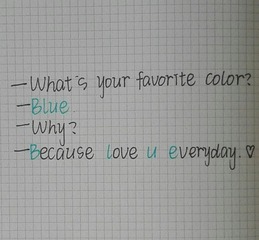 —What's your favorite color?
—Blue.
—Why?
—Because love u everyday.♡